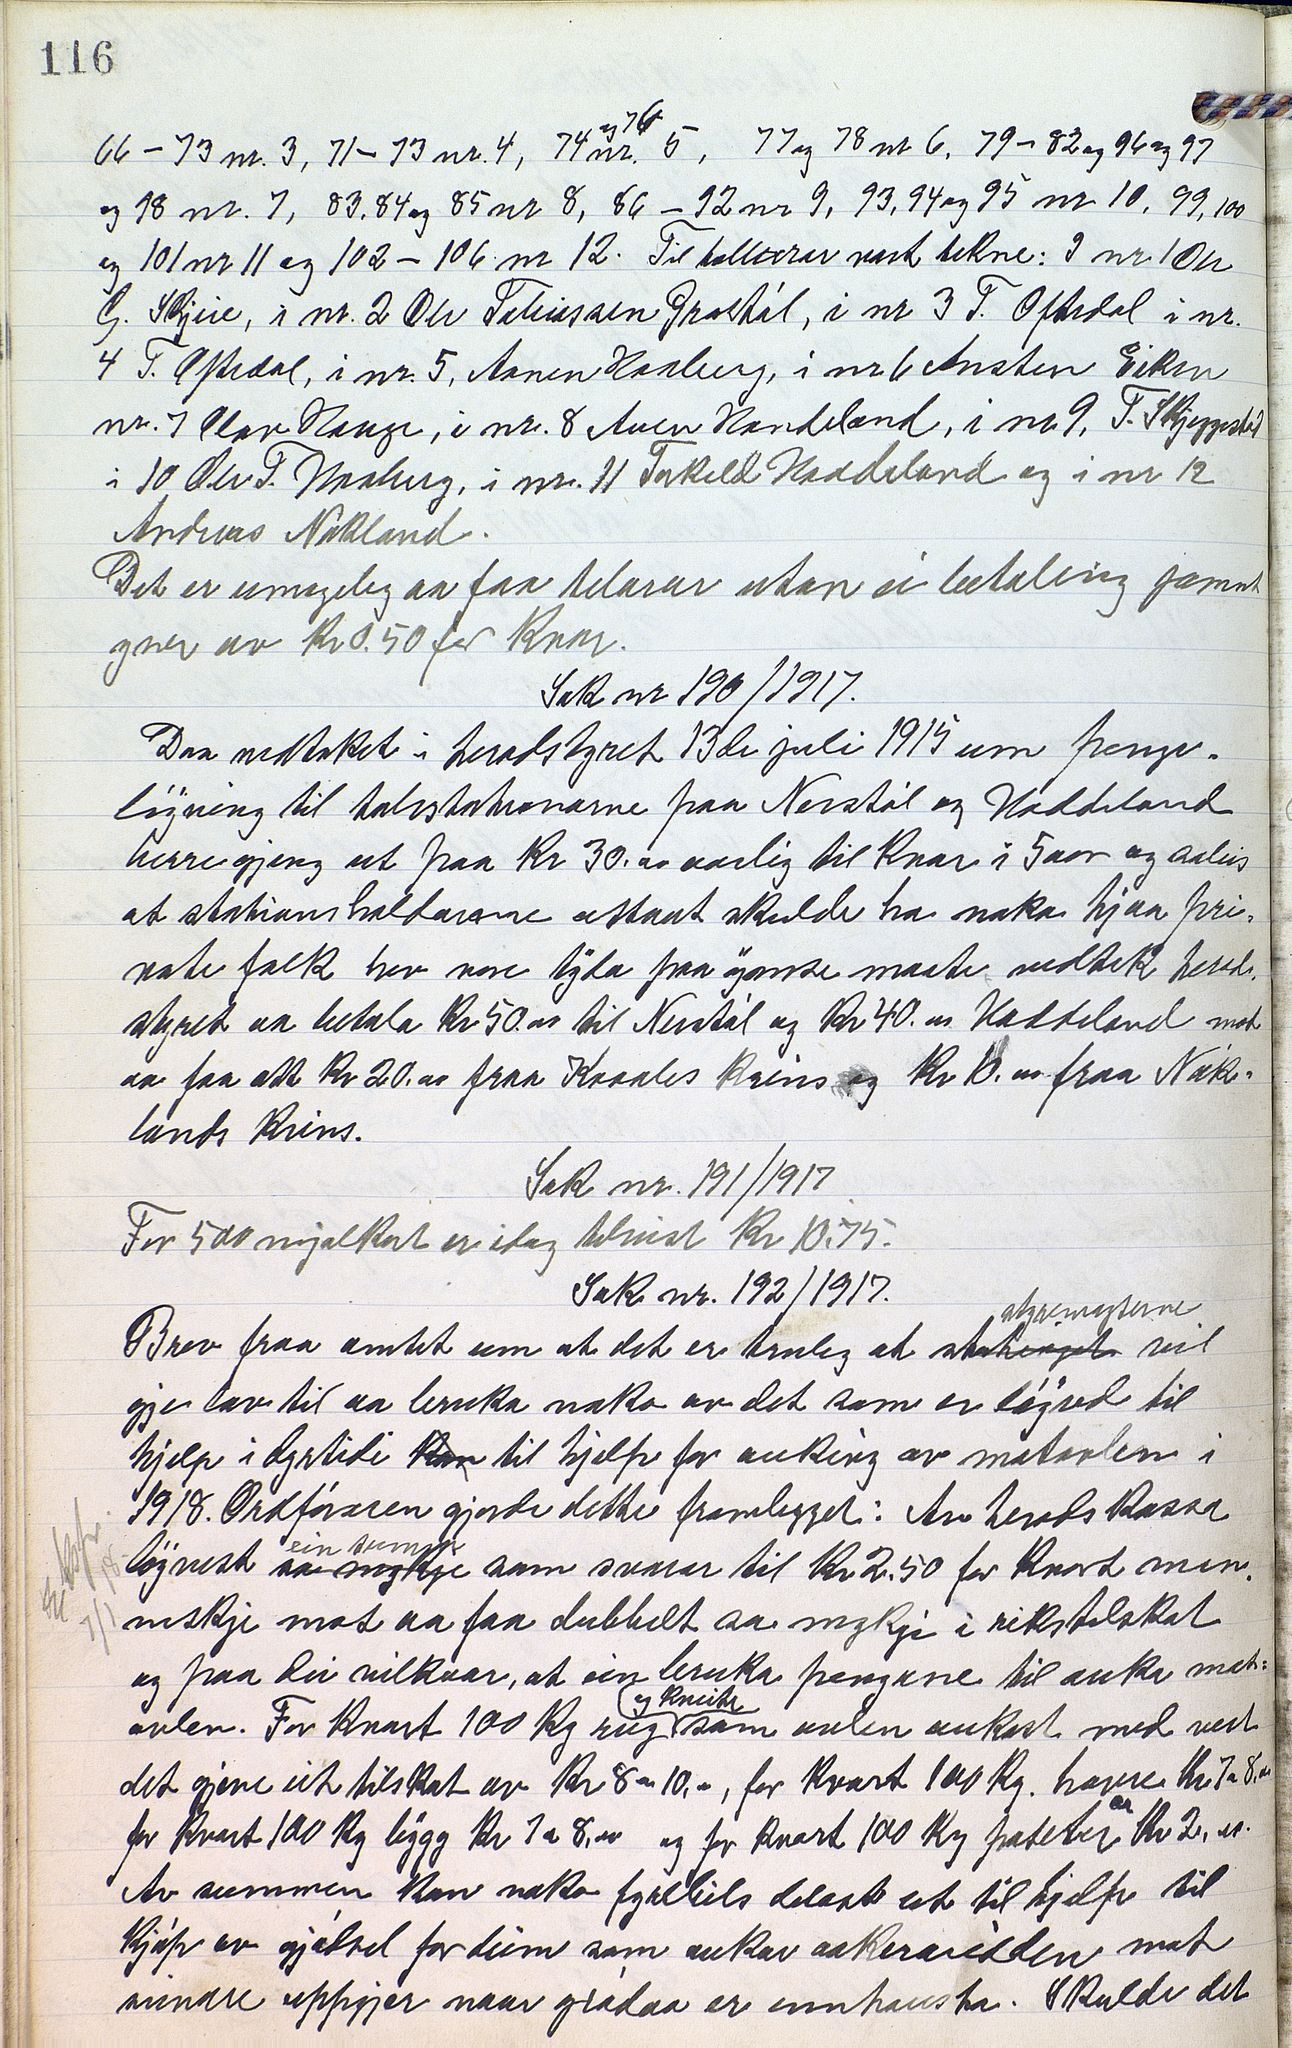 116
66 – 73 nr. 3, 71 – 73 nr. 4, 74 og 76 nr. 5, 77 og 78 nr 6, 79 – 82 og 96 og 97
og 98 nr. 7, 83, 84 og 85 nr 8, 86 – 92 nr 9, 93, 94 og 95 nr 10, 99, 100
og 101 nr 11 og 102 – 106 nr 12. Til teljarar vart tekne: I nr 1 Olr
G. Skjeie, i nr. 2 Olr Tobiassen Grostøl, i nr 3 T. Oftedal i nr.
4 T. Oftedal, i nr. 5, Aanen Haaberg, i nr 6 Ansten Eiken
nr. 7 Olav Hauge, i nr. 8 Aven Handeland, i nr 9, T. Skjeggestad
i 10 Olr T. Haaberg, i nr. 11 Torkeld Haddeland og i nr 12
Andreas Nakland.
Det er umogeleg aa faa teljarar utan ei betaling jamnt
yver av Kr 0.50 for kvar.
Sak nr 190/1917.
Daa vedtaket i heradstyret 13de juli 1915 um penge-
løgning til talestationarne paa Nerstøl og Haddeland
berre gjeng ut paa Kr 30.00 aarlig til kvar i 5 aar og soleis
at stationshaldarane attaat skulde ha noko hjaa pri-
vate folk hev vore tyda paa ymse maate vedtek herads-
styret aa betala Kr 50.00 til Nerstøl og Kr 40.00 Haddeland mot
aa faa att Kr 20.00 fraa Kvaales krins og Kr 10.00 fraa Nak-
lands krins.
Sak nr. 191/1917
For 500 mjølkort er idag tilvist Kr 10.75.
Sak nr. 192/1917.
styremagterne
Brev fraa amtet um at det er truleg at stortinget vil
gje lov til aa bruka noko av det som er løgved til
hjelp i dyrtidi kan til hjelp for auking av matavlen i
1918. Ordføraren gjorde dette framlegget: Av heradskassa
ein summ
løgnest so mykje som svarar til Kr 2.50 for kvart men-
neskje mot aa faa dubbelt so mykje i rikstilskot
og paa dei vilkaar, at ein bruka pengane til auka mat-
og kveite
avlen. For kvart 100 Kg rug som avlen aukast med vert
det gjeve eit tilskot av Kr 8 a 10.00, for kvart 100 Kg. havre Kr 7 a 8.00
for kvart 100 Kg bygg Kr 7 a 8.00 og for kvart 100 Kg poteter Kr 2.00.
Av summen kan noko fyrebils delast ut til hjelp til
kjøp av gjødsel for deim som aukar aakervidden mot
seinare uppgjer naar grøda er innhausta. Skulde det